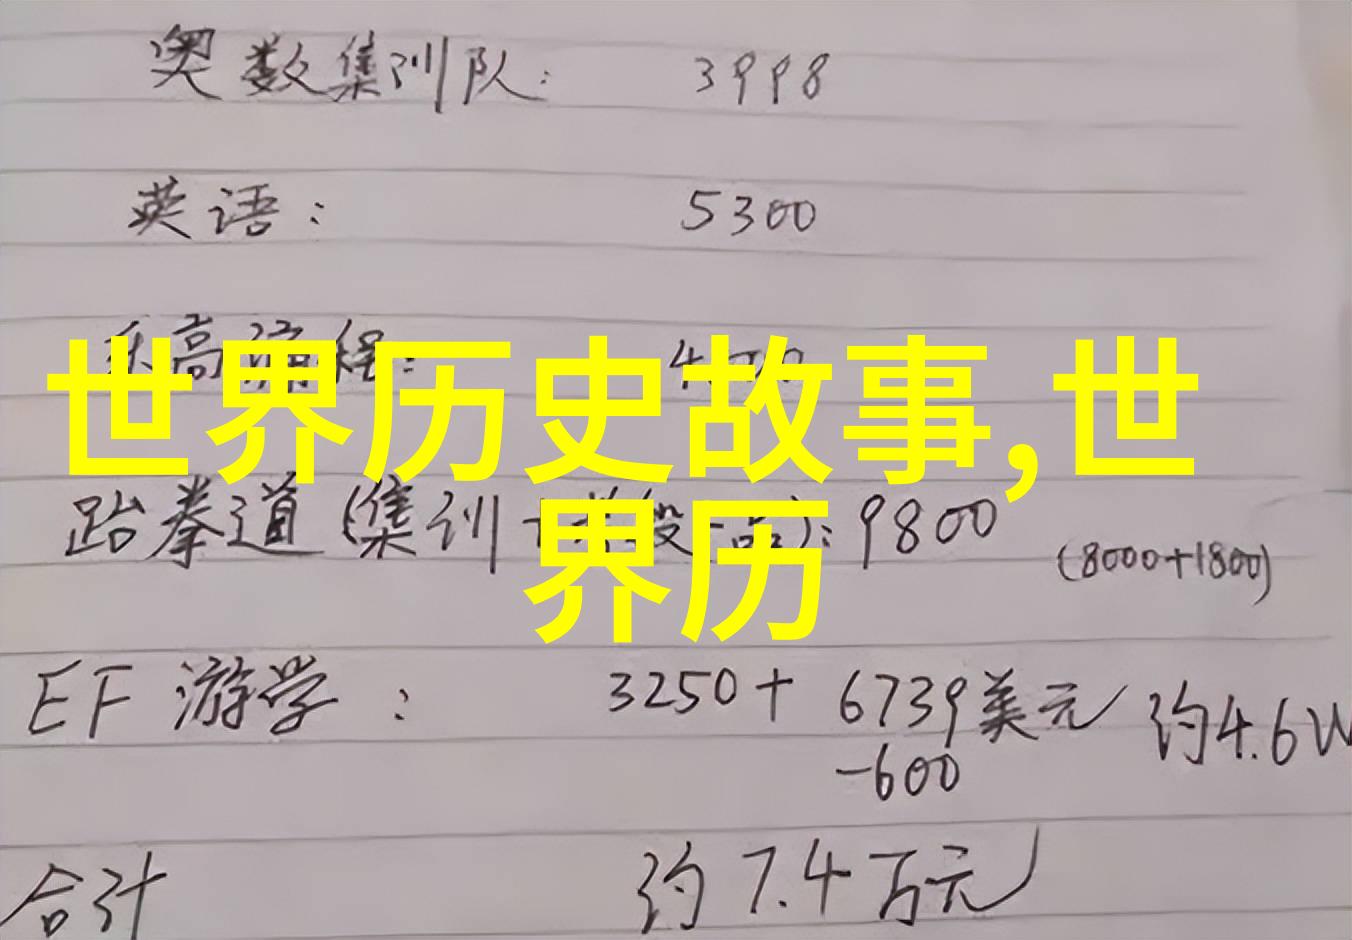 奥数集训队: 3998
英语: 5300
高编程:
世界历史故事,世
界历
跆拳道(集训+ 段 ): 9800
(8000+1800)
EF 游学: 3250+ 6739美元 约4.6W
-600
合计 约7.4万元